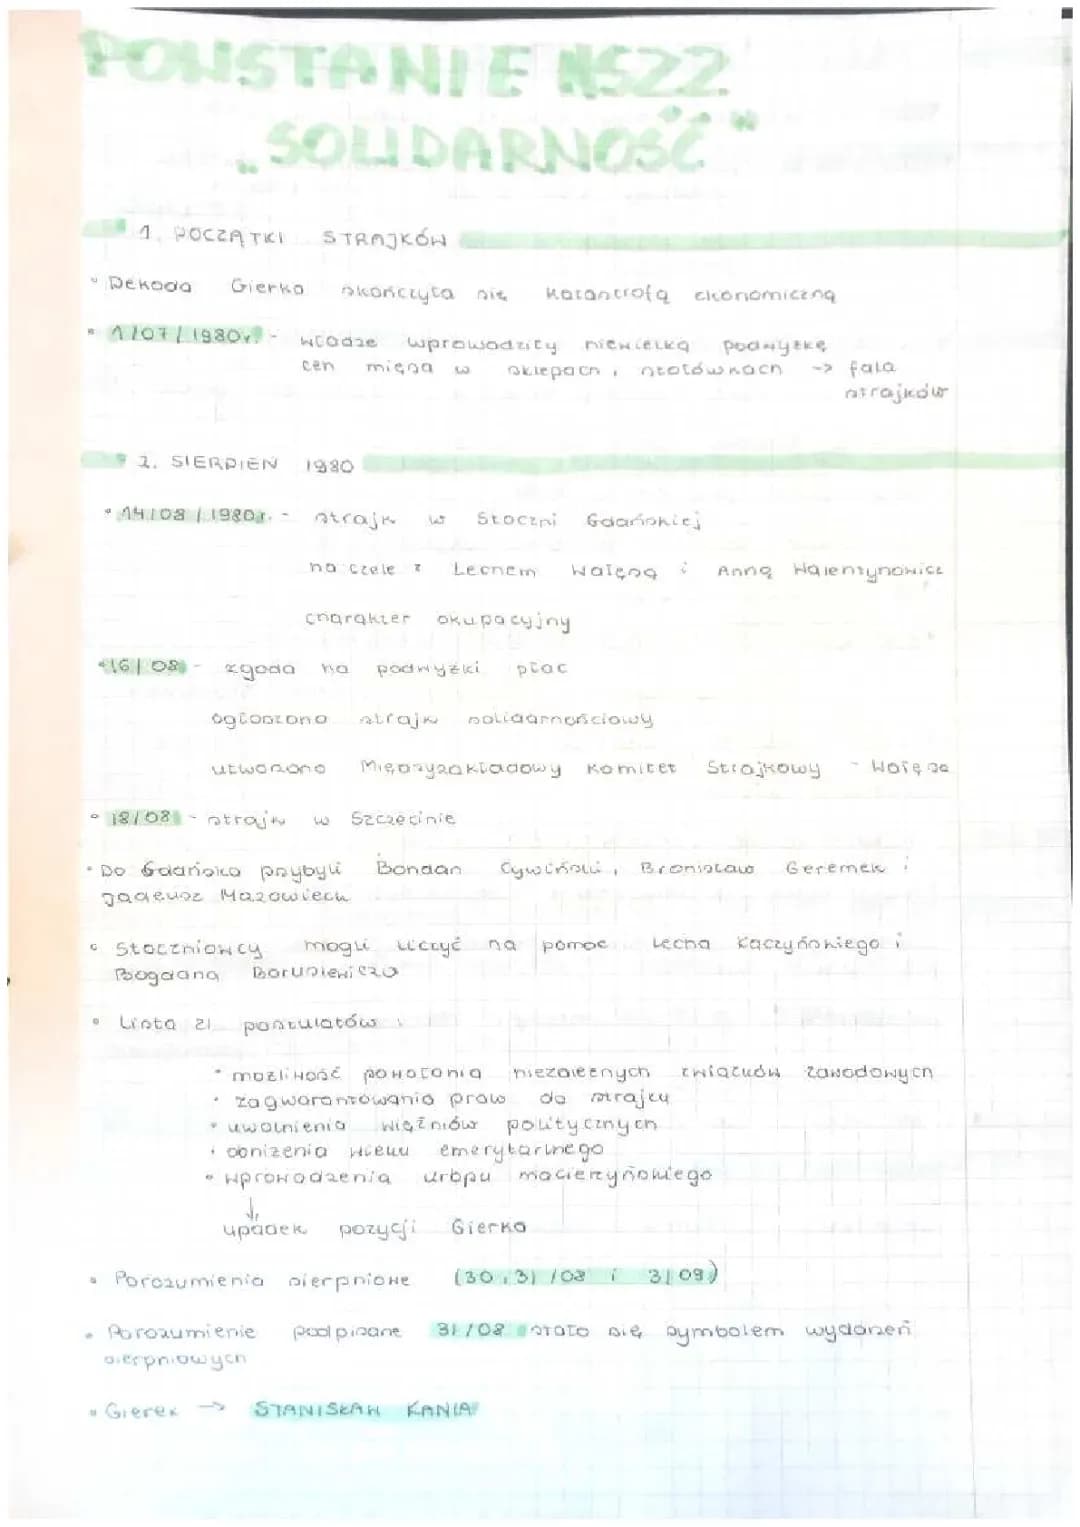 POWSTANIE NSZZ
„SOLIDARNOŚĆ"
1. POCZĄTKI STRAJKÓW
Dekada Gierka skończyła się katastrofą ekonomiczną
1/07/1980r. - władze wprowadziły niewielką podwyżkę
cen mięsa w sklepach, stołówkach -> fala
strajków
2. SIERPIEŃ 1980
14/08/1980r. - strajk w Stoczni Gdańskiej
na czele z Lechem Wałęsą i Anną Walentynowicz
charakter okupacyjny
16/08 - zgoda na podwyżki płac
ogłoszono strajk solidarnościowy
utworzono Międzyzakładowy Komitet Strajkowy - Wałęsa
18/08 - strajk w Szczecinie
Do Gdańska przybyli Bohdan Cywiński, Bronisław Geremek i
Tadeusz Mazowiecki
Stoczniowcy mogli liczyć na pomoc Lecha Kaczyńskiego i
Bogdana Borusiewicza
Lista 21 postulatów:
możliwość powołania niezależnych związków zawodowych
zagwarantowania praw do strajku
uwolnienia więźniów politycznych
obniżenia wieku emerytalnego
wprowadzenia urlopu macierzyńskiego
↓
upadek pozycji Gierka
Porozumienia sierpniowe (30 i 31/08 i 3/09)
Porozumienie podpisane 31/08 stało się symbolem wydarzeń
sierpniowych
Gierek -> STANISŁAW KANIA